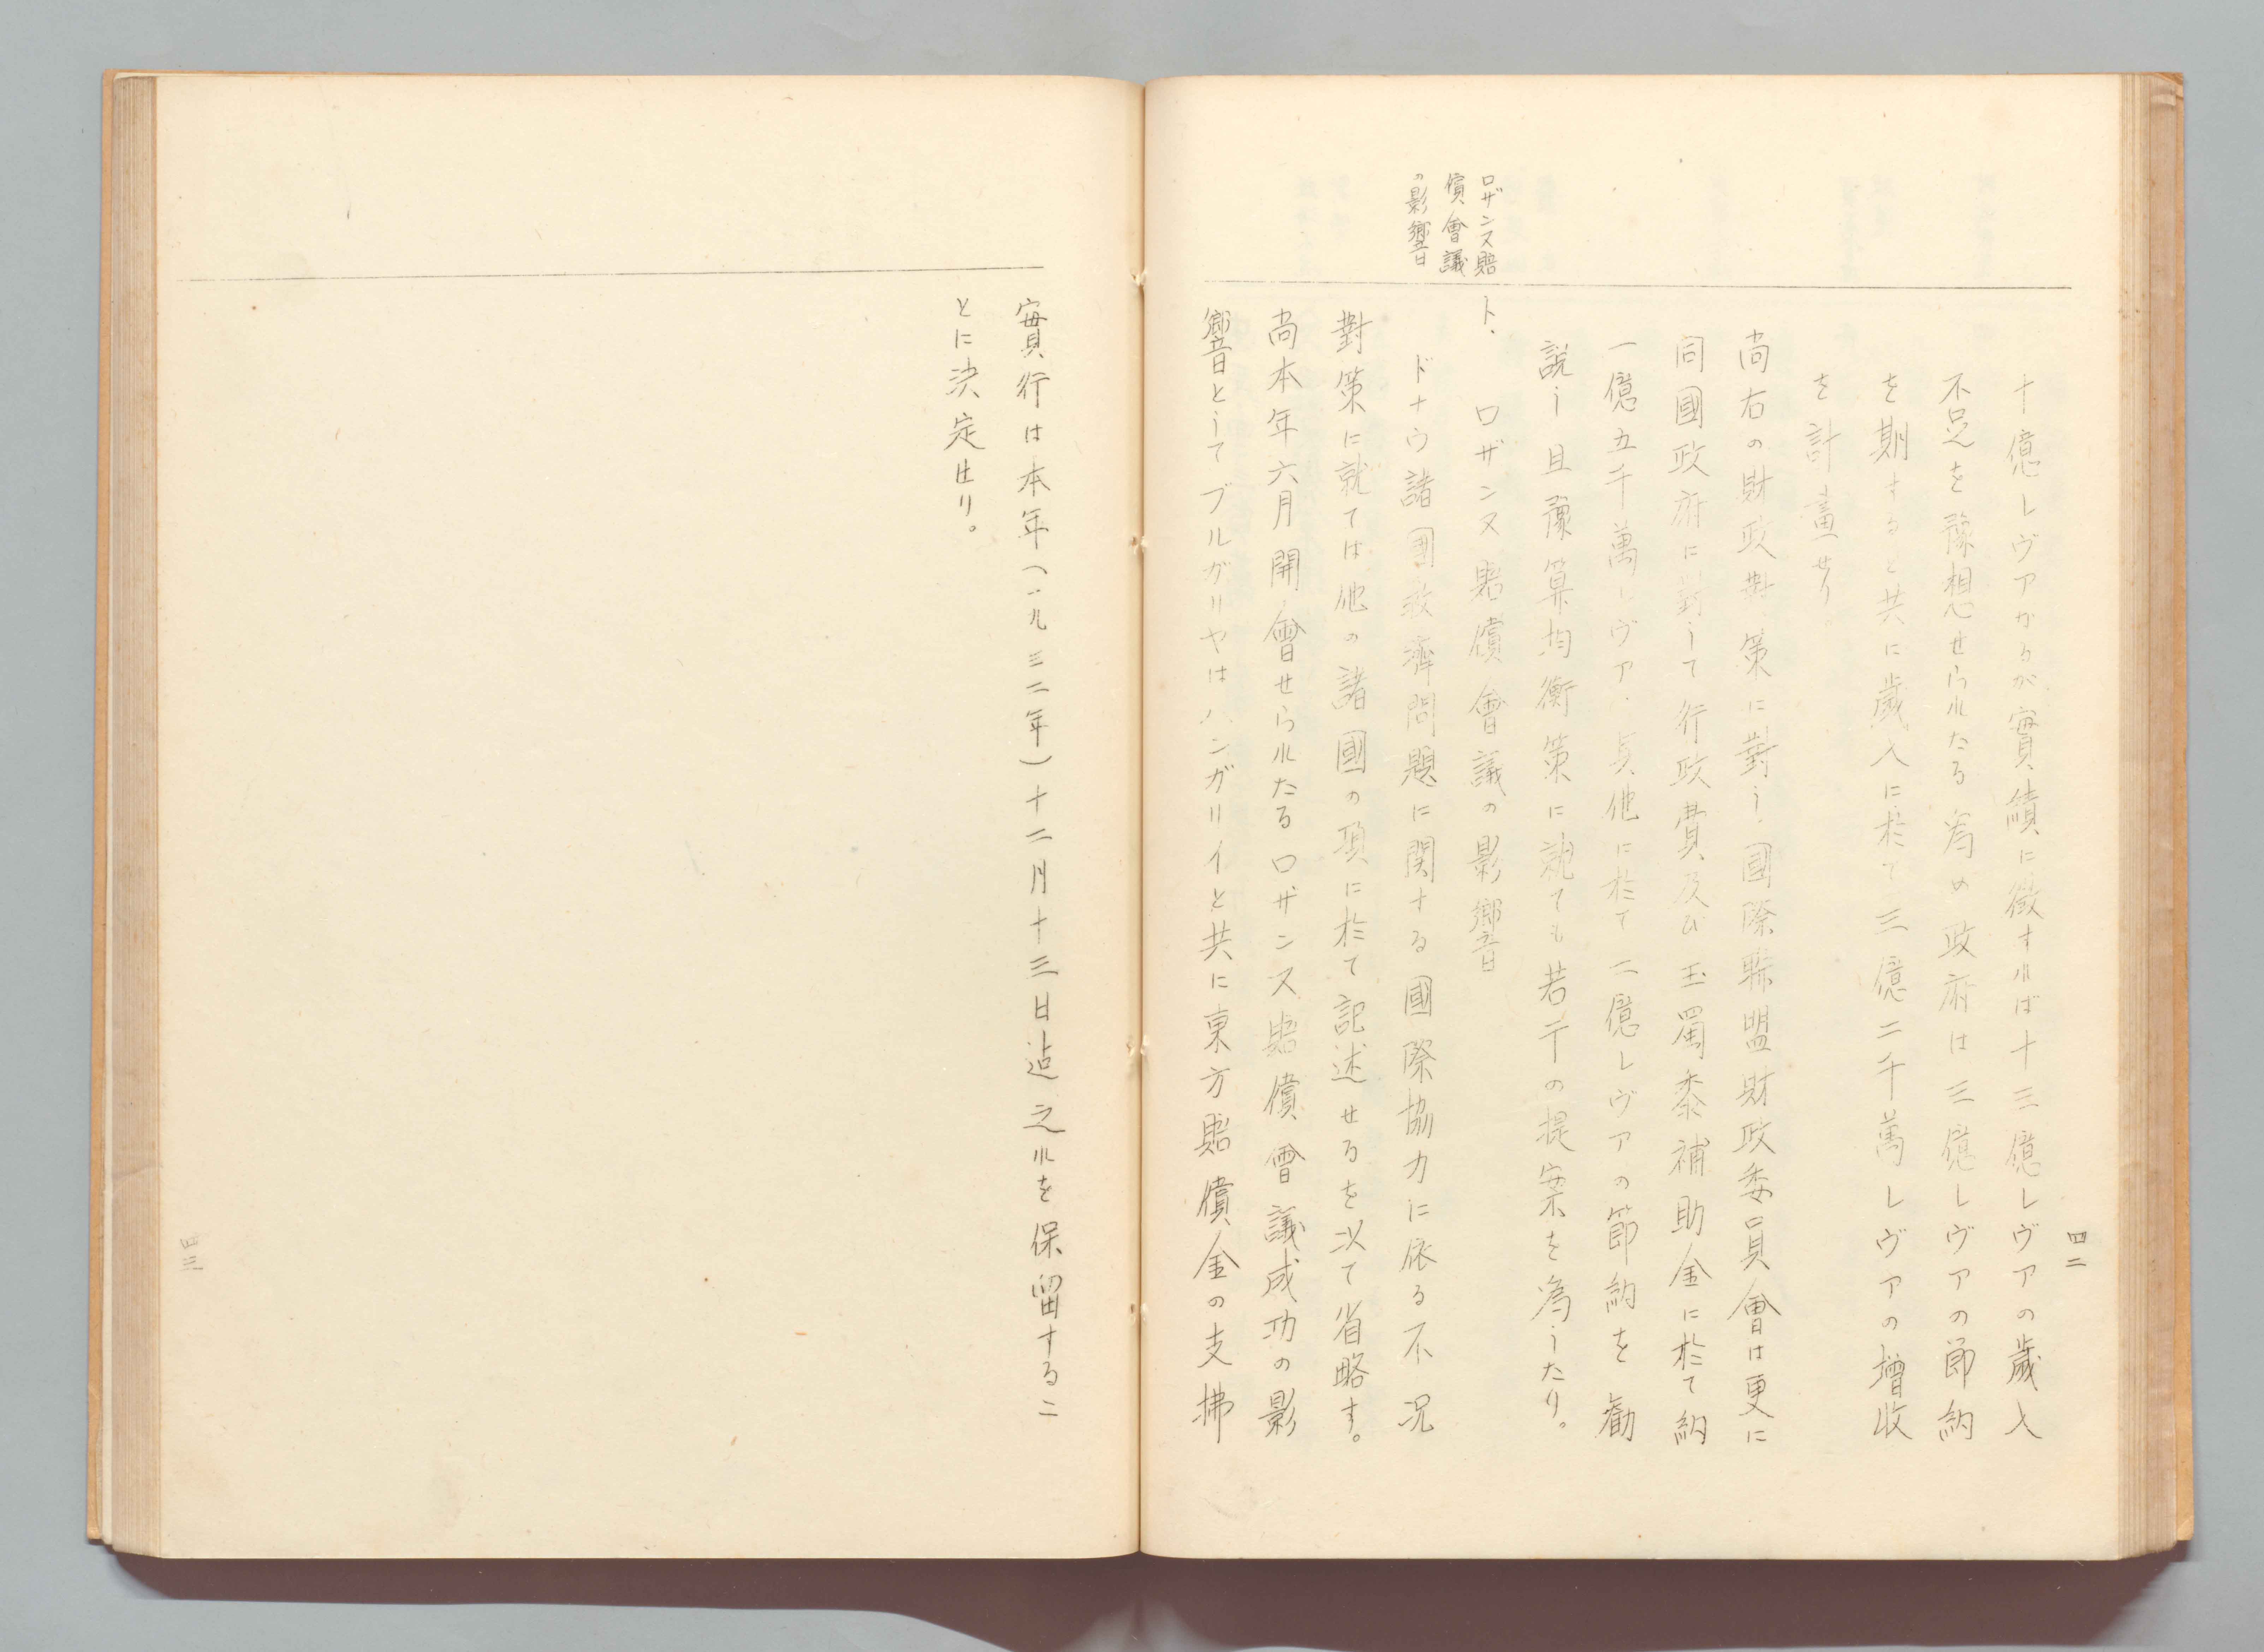 四二
十億レヴアがるが實績に徴すれば十三億レヴアの歲入
不足を豫想せられたる爲め政府は三億レヴアの節納
を期すると共に歲入に於て三億二千萬レヴアの增收
を計畫せり。
尚右の財政對策に對し國際聯盟財政委員會は更に
同國政府に對して行政費及び玉蜀黍補助金に於て約
一億五千萬レヴア・其他に於て二億レヴアの節約を勸
說し且豫算均衡策に就ても若干の提案を爲したり。
ロザンヌ賠
償會議
の影響
ト、ロザンヌ賠償會議の影響
ドナウ諸國救濟問題に関する國際協力に依る不況
對策に就ては他の諸國の項に於て記述せるを以て省略す。
尚本年六月開會せられたるロザンヌ賠償會議成功の影
響としてブルガリヤはハンガリイと共に東方賠償金の支拂
實行は本年(一九三二年)十二月十三日迠之れを保留するこ
とに決定せり。
四三